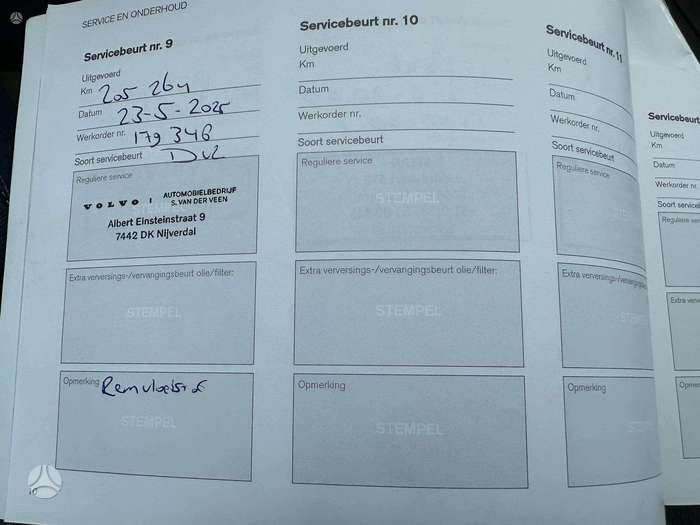 SERVICE EN ONDERHOUD
Servicebeurt nr. 9
Uitgevoerd
Km 205 264
Datum 23-5-2025
Werkorder nr. 179 346
Soort servicebeurt
Reguliere service
VOLVO | AUTOMOBIELBEDRIJF
S. VAN DER VEEN
Albert Einsteinstraat 9
7442 DK Nijverdal
Extra verversings-/vervangingsbeurt olie/filter:
STEMPEL
Opmerking Remvloeistof
STEMPEL
Servicebeurt nr. 10
Uitgevoerd
Km
Datum
Werkorder nr.
Soort servicebeurt
Reguliere service
STEMPEL
Extra verversings-/vervangingsbeurt olie/filter:
STEMPEL
Opmerking
STEMPEL
Servicebeurt nr. 11
Uitgevoerd
Km
Datum
Werkorder nr.
Soort servicebeurt
Reguliere service
Extra verversings-/vervangings
Opmerking
Servicebeurt
Uitgevoerd
Km
Datum
Werkorder nr.
Soort service
Reguliere ser
Extra verversi
Opmer